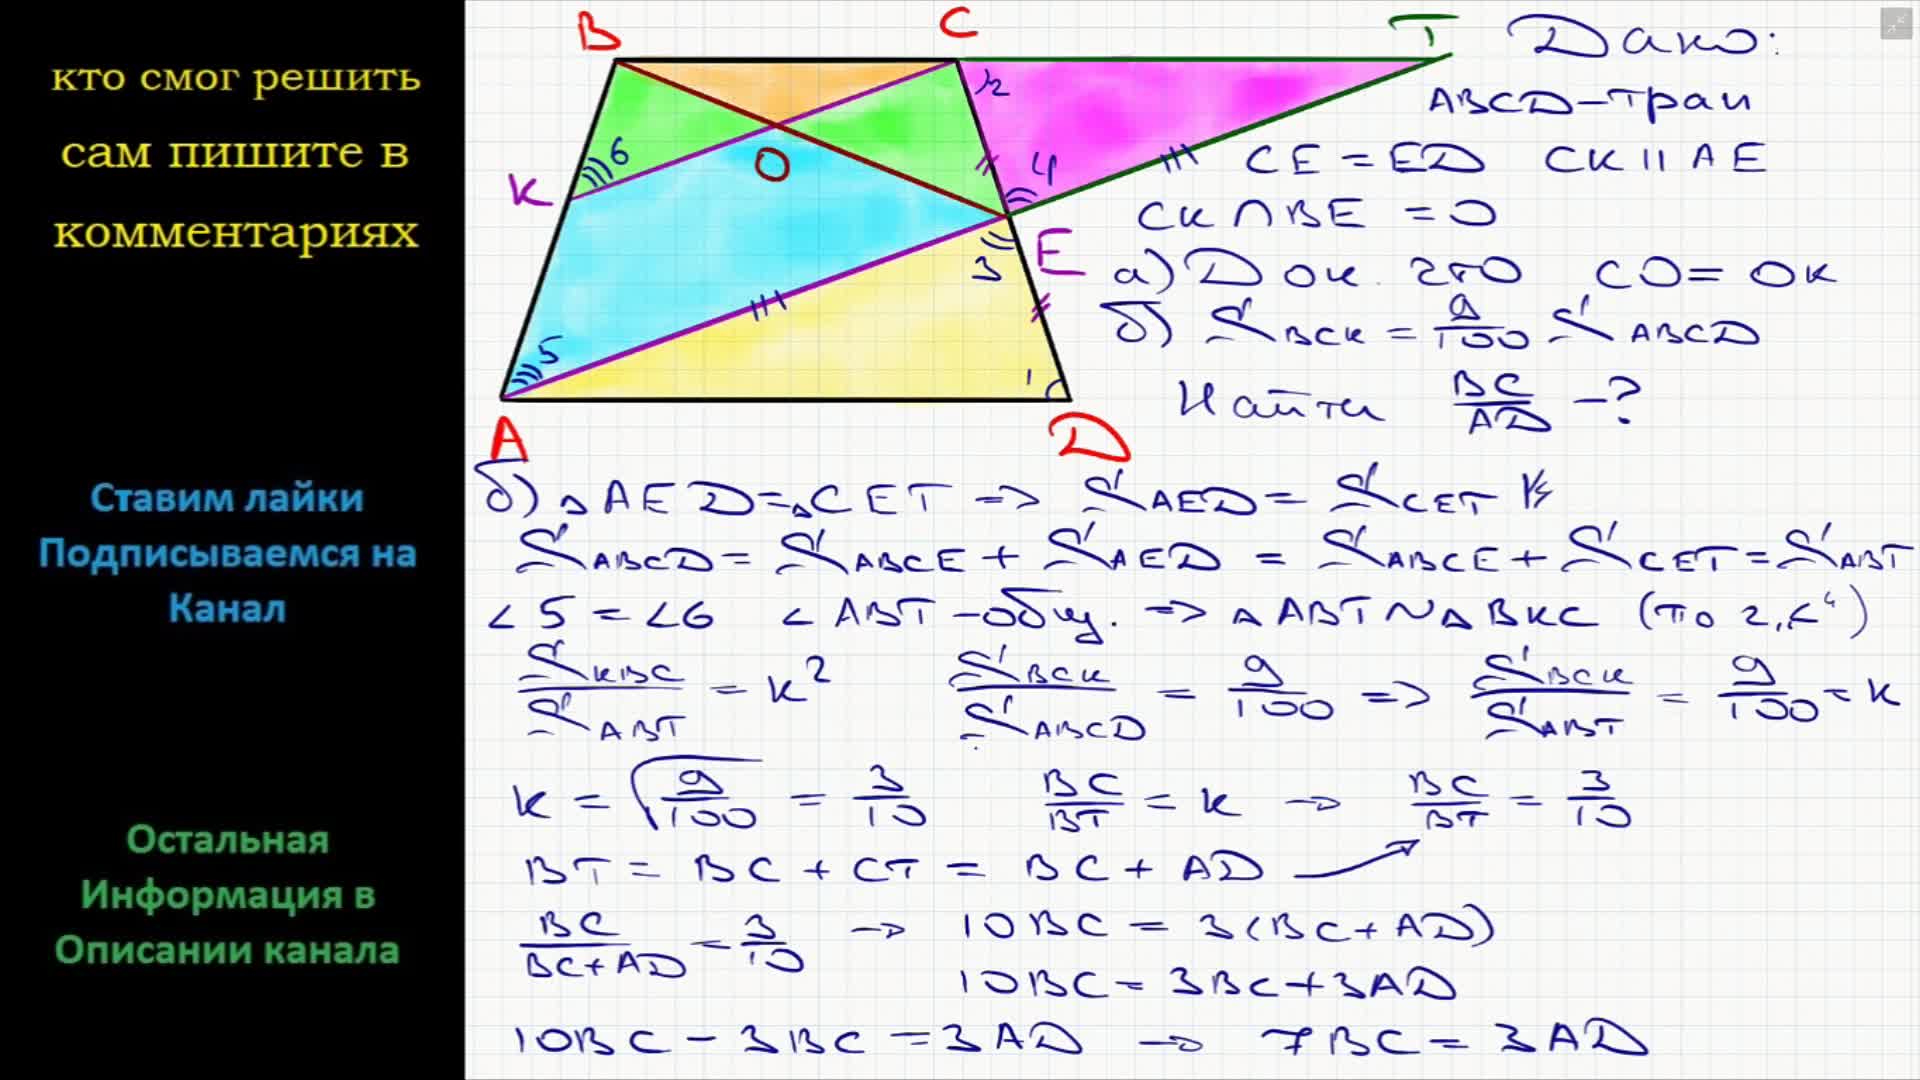 кто смог решить
сам пишите в
комментариях
Ставим лайки
Подписываемся на
Канал
Остальная
Информация в
Описании канала
B C T
K O E
A D
6 2 4 3 5 1
Дано:
ABCD–трап
CE = ED CK || AE
CK ∩ BE = O
а) Док. что CO = OK
б) S BCK = 9/100 S ABCD
Найти BC/AD –?
б) △AED = △CET => S AED = S CET
S ABCD = S ABCE + S AED = S ABCE + S CET = S ABT
∠5 = ∠6 ∠ABT – общ. => △ABT ~ △BKC (по 2, ∠")
S KBC / S ABT = k² S BCK / S ABCD = 9/100 => S BCK / S ABT = 9/100 = k
k = √(9/100) = 3/10 BC/BT = k → BC/BT = 3/10
BT = BC + CT = BC + AD
BC/(BC+AD) = 3/10 → 10BC = 3(BC+AD)
10BC = 3BC + 3AD
10BC – 3BC = 3AD → 7BC = 3AD